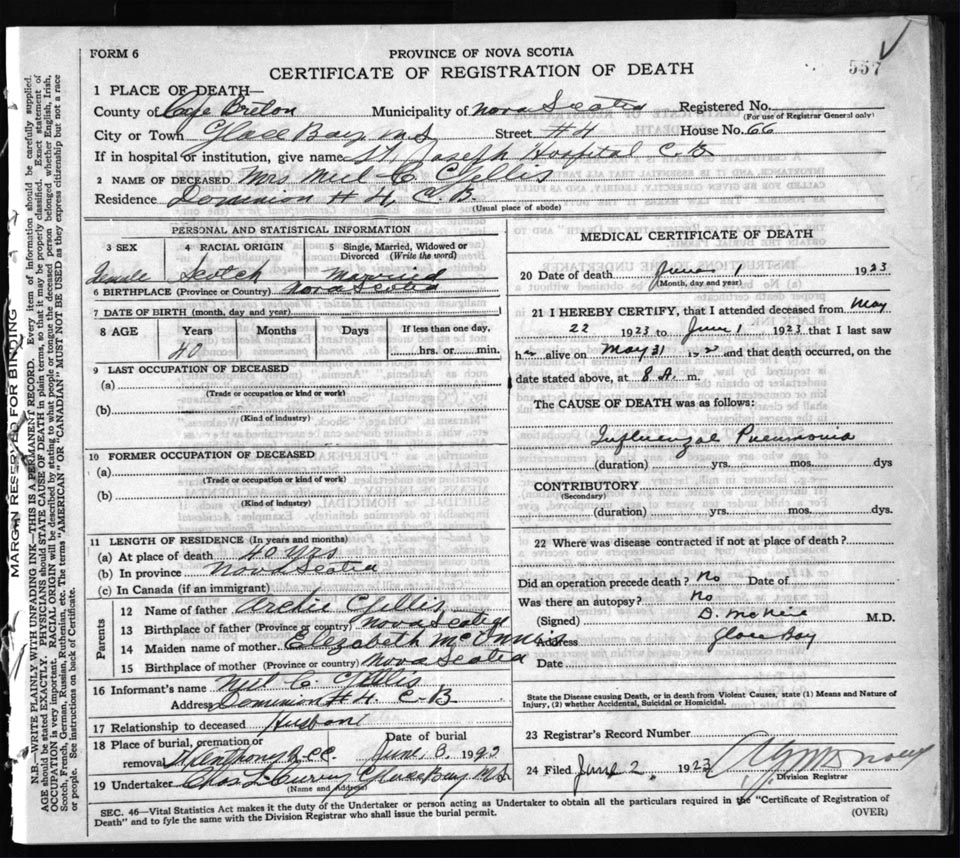 FORM 6
PROVINCE OF NOVA SCOTIA
557
CERTIFICATE OF REGISTRATION OF DEATH
1 PLACE OF DEATH—
County of Cape Breton Municipality of Nova Scotia Registered No.
(For use of Registrar General only)
City or Town Glace Bay N.S Street #4 House No. 66
If in hospital or institution, give name St. Joseph Hospital C.B
2 NAME OF DECEASED Mrs Neil C Gillis
Residence Dominion #4, C.B.
(Usual place of abode)
PERSONAL AND STATISTICAL INFORMATION
3 SEX 4 RACIAL ORIGIN 5 Single, Married, Widowed or Divorced (Write the word)
Female Scotch Married
6 BIRTHPLACE (Province or Country) Nova Scotia
7 DATE OF BIRTH (month, day and year)
8 AGE Years Months Days If less than one day,
40 hrs. or min.
9 LAST OCCUPATION OF DECEASED
(a)
(Trade or occupation or kind or work)
(b)
(Kind of industry)
10 FORMER OCCUPATION OF DECEASED
(a)
(Trade or occupation or kind of work)
(b)
(Kind of Industry)
11 LENGTH OF RESIDENCE (In years and months)
(a) At place of death 40 yrs
(b) In province Nova Scotia
(c) In Canada (if an immigrant)
Parents
12 Name of father Archie Gillis
13 Birthplace of father (Province or country) Nova Scotia
14 Maiden name of mother Elizabeth
15 Birthplace of mother (Province or country) Nova Scotia
16 Informant's name Neil C. Gillis
Address Dominion #4 C-B
17 Relationship to deceased Husband
18 Place of burial, cremation or removal St Anthony Date of burial June, 3, 192
19 Undertaker Chas Glace Bay N.S.
(Name and Address)
MEDICAL CERTIFICATE OF DEATH
20 Date of death June 1 1923
(Month, day and year)
21 I HEREBY CERTIFY, that I attended deceased from May
22 1923 to June 1 1923 that I last saw
her alive on May 31 192 and that death occurred, on the
date stated above, at 8 A. m.
The CAUSE OF DEATH was as follows:
Influenzal Pneumonia
(duration) yrs. mos. dys
CONTRIBUTORY
(Secondary)
(duration) yrs. mos. dys.
22 Where was disease contracted if not at place of death?
Did an operation precede death? No Date of
Was there an autopsy? No
(Signed) D. McNeil M.D.
Address Glace Bay
Date
State the Disease causing Death, or in death from Violent Causes, state (1) Means and Nature of Injury, (2) whether Accidental, Suicidal or Homicidal.
23 Registrar's Record Number
24 Filed June 2. 1923
Division Registrar
SEC. 46—Vital Statistics Act makes it the duty of the Undertaker or person acting as Undertaker to obtain all the particulars required in the "Certificate of Registration of
Death" and to fyle the same with the Division Registrar who shall issue the burial permit.
(OVER)
MARGIN RESERVED FOR BINDING
N.B.—WRITE PLAINLY WITH UNFADING INK—THIS IS A PERMANENT RECORD. Every item of information should be carefully supplied.
AGE should be stated EXACTLY. PHYSICIANS should STATE CAUSE OF DEATH in plain terms, so that it may be properly classified. Exact statement of
OCCUPATION is very important. RACIAL ORIGIN will be described by stating to what people or tongue the deceased person belonged whether English, Irish,
Scotch, French, German, Russian, Ruthenian, etc. The terms "AMERICAN" OR "CANADIAN" MUST NOT BE USED as they express citizenship but not a race
or people. See instructions on back of Certificate.